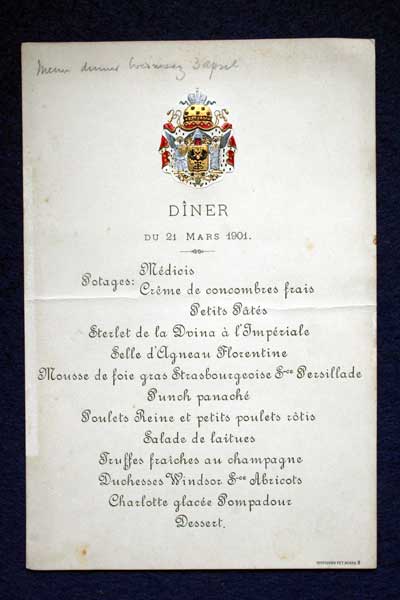 Menu dinner Wednesday 3 april
DÎNER
DU 21 MARS 1901.
Potages: Médicis
Crême de concombres frais
Petits Pâtés
Sterlet de la Dvina à l'Impériale
Selle d'Agneau Florentine
Mousse de foie gras Strasbourgeoise Sce Persillade
Punch panaché
Poulets Reine et petits poulets rôtis
Salade de laitues
Truffes fraîches au champagne
Duchesses Windsor Sce Abricots
Charlotte glacée Pompadour
Dessert.